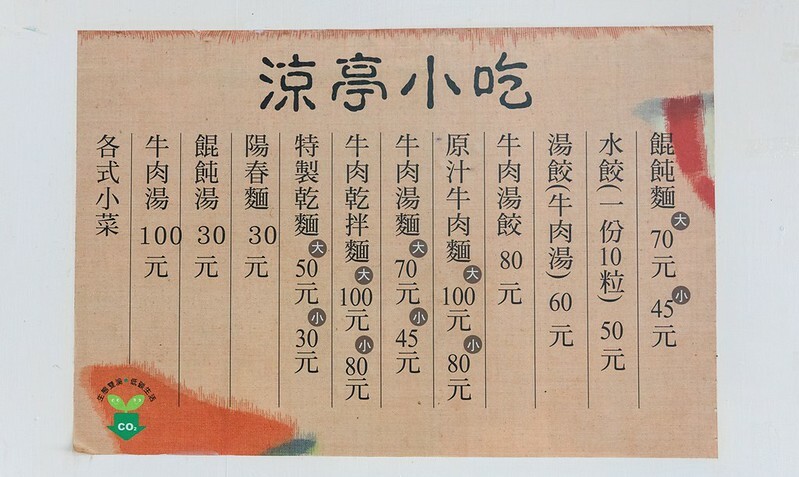 涼亭小吃
餛飩麵 大 70元 小 45元
水餃(一份10粒) 50元
湯餃(牛肉湯) 60元
牛肉湯餃 80元
原汁牛肉麵 大 100元 小 80元
牛肉湯麵 大 70元 小 45元
牛肉乾拌麵 大 100元 小 80元
特製乾麵 大 50元 小 30元
陽春麵 30元
餛飩湯 30元
牛肉湯 100元
各式小菜
低碳生活
CO₂